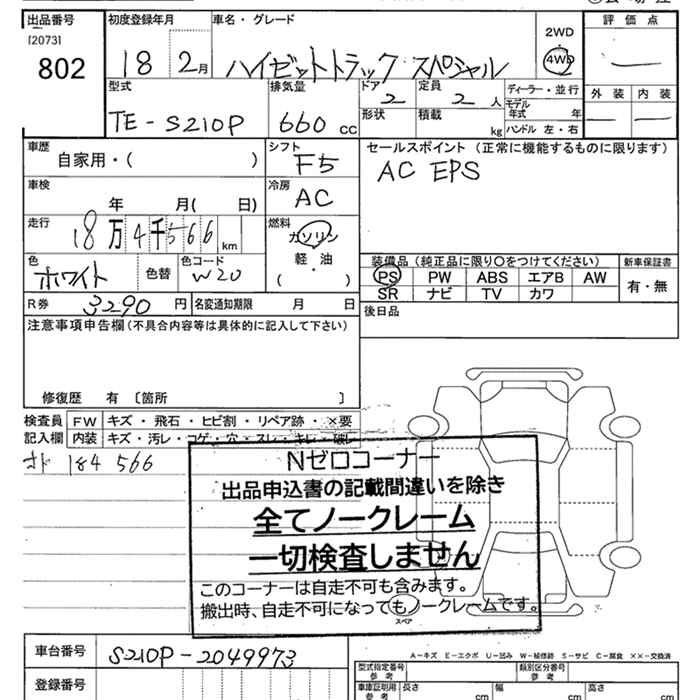 出品番号 初度登録年月 車名・グレード 2WD 評価点
[2073]
802 18 2月 ハイゼットトラック スペシャル 4WD
型式 排気量 ドア 定員 ディーラー・並行 外装 内装
TE-S210P 660cc 2 2人 モデル年式 年
形状 積載 kg ハンドル 左・右
車歴 自家用・( ) シフト F5 セールスポイント (正常に機能するものに限ります)
AC EPS
車検 年 月( 日) 冷房 AC
走行 18万4千566km 燃料 ガソリン
軽・油
( )
色 ホワイト 色替 色コード W20
装備品 (純正品に限り○をつけてください) 新車保証書
PS PW ABS エアB AW 有・無
SR ナビ TV カワ
R券 3290円 名変通知期限 月 日 後日品
注意事項申告欄 (不具合内容等は具体的に記入して下さい)
修復歴 有 〔箇所 〕
検査員 FW キズ・飛石・ヒビ割・リペア跡・×要
記入欄 内装 キズ・汚レ・コゲ・穴・スレ・キレ・破レ
184566
Nゼロコーナー
出品申込書の記載間違いを除き
全てノークレーム
一切検査しません
このコーナーは自走不可も含みます。
搬出時、自走不可になってもノークレームです。
スペア
A-キズ E-エクボ U-凹み W-補修跡 S-サビ C-腐食 ××-交換済
車台番号 S210P-2049973
型式指定番号 参考 類別区分番号 参考
登録番号 車庫証明用 参考 長さ cm 幅 cm 高さ cm